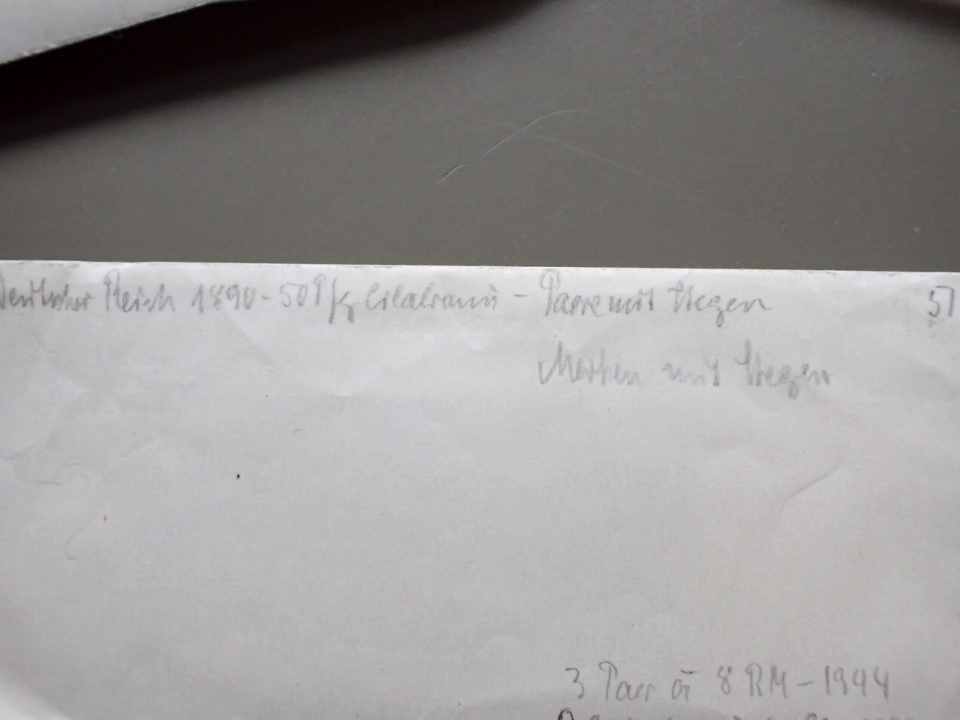 Deutsches Reich 1890 - 50 Pfg lilabraun - Paare mit Stegen 57
Marken mit Stegen
3 Paar à 8 RM - 1944